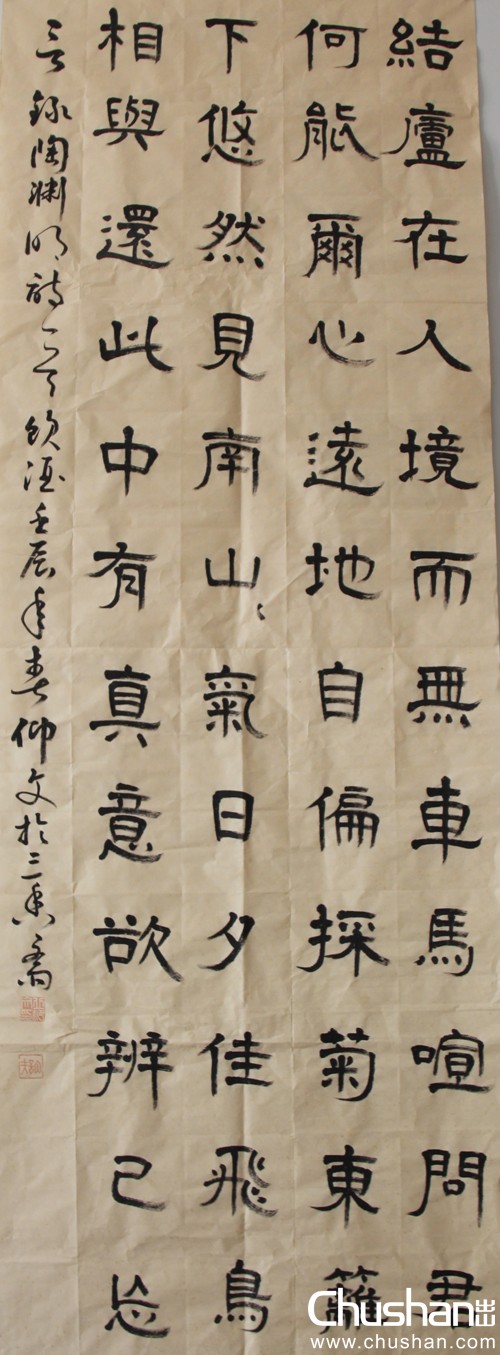 結廬在人境而無車馬喧問君
何能爾心遠地自偏採菊東籬
下悠然見南山〻氣日夕佳飛鳥
相與還此中有真意欲辨已忘
言 錄陶淵明詩一首飲酒壬辰年春仰文於三香齋
Chushan出山
www.chushan.com